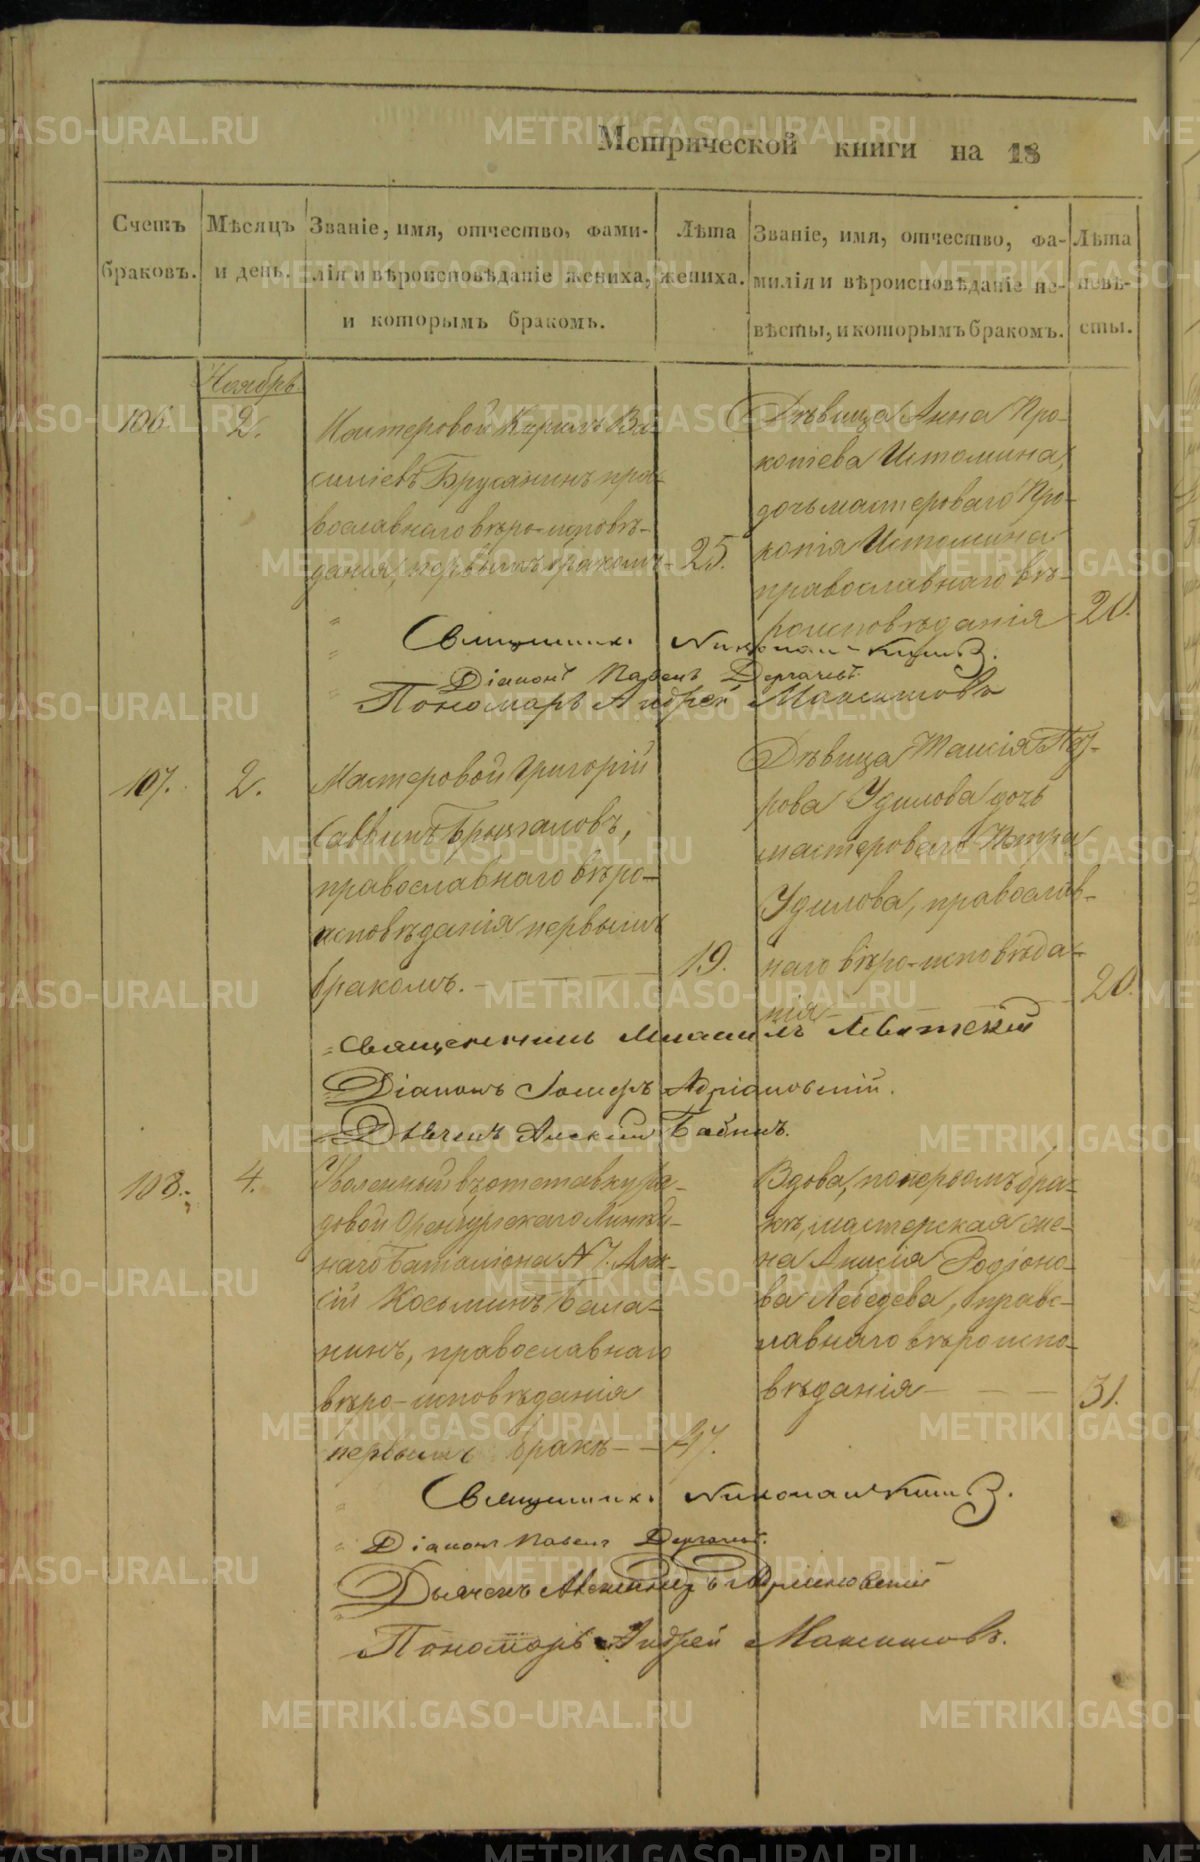 Метрической книги на 18
Счетъ браковъ.
Мѣсяцъ и день.
Званіе, имя, отчество, фами-
лія и вѣроисповѣданіе жениха,
и которымъ бракомъ.
Лѣта жениха.
Званіе, имя, отчество, фа-
милія и вѣроисповѣданіе не-
вѣсты, и которымъ бракомъ.
Лѣта невѣ-
сты.
Ноябрь
106
2.
Мастеровой Кирилъ Ва-
силіевъ Брусянинъ пра-
вославнаго вѣро-исповѣ-
данія, первымъ бракомъ
25.
Дѣвица Анна Про-
копіева Истомина,
дочь мастероваго Про-
копія Истомина
православнаго вѣ-
роисповѣданія
20.
Священникъ Николай
Діаконъ Павелъ Дергачевъ
Пономарь Андрей Максимовъ
107.
2.
Мастеровой Григорій
Саввинъ Брызгаловъ,
православнаго вѣро-
исповѣданія первымъ
бракомъ.
19.
Дѣвица Таисія Пет-
рова Удилова дочь
мастероваго Петра
Удилова, православ-
наго вѣро-исповѣда-
нія
20.
Священникъ Михаилъ Левитскій
Діаконъ Іосифъ Адріановскій.
Дьячекъ Алексій Бабинъ.
108.
4.
Уволенный въ отставку ря-
довой Оренбургскаго Линѣй-
наго Баталіона № 7. Алек-
сій Косьминъ Бала-
нинъ, православнаго
вѣро-исповѣданія
первымъ бракъ
37.
Вдова, по первомъ бра-
кѣ, мастерская же-
на Анисія Родіоно-
ва Лебедева, право-
лавнаго вѣроиспо-
вѣданія
31.
Священникъ Николай
Діаконъ Павелъ Дергачевъ.
Дьячекъ Александръ Адріановскій
Пономарь Андрей Максимовъ.
METRIKI.GASO-URAL.RU